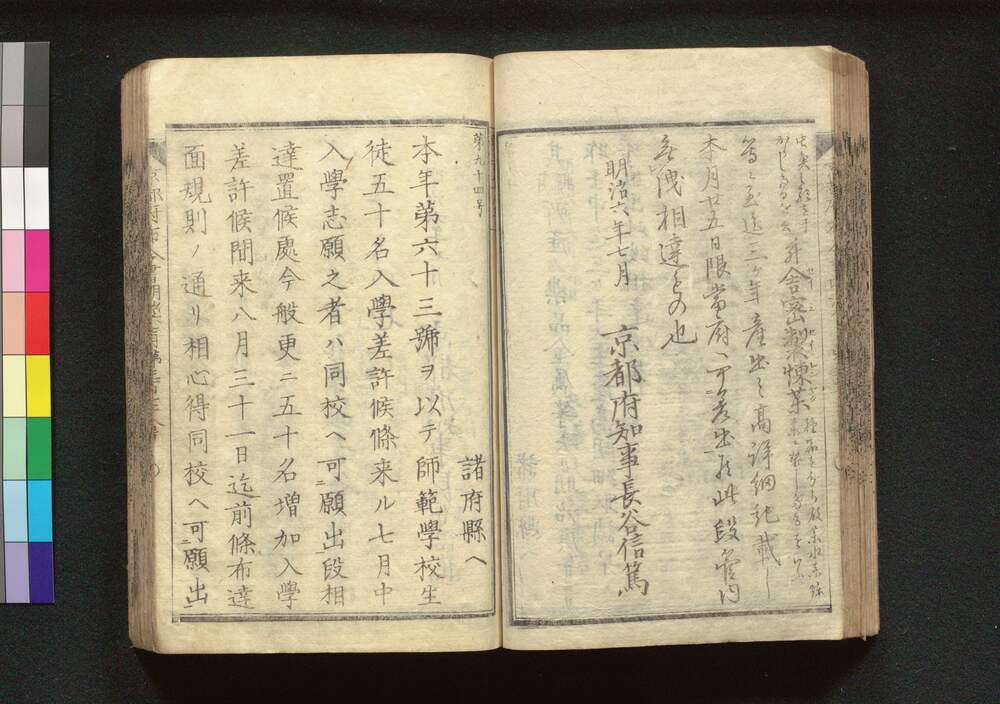 舎密製煉茶
等之至迄三ヶ年産出之高詳細記載し
本月廿五日限當府へ可差出候此段管内
無洩相達もの也
明治六年七月
京都府知事長谷信篤
第九十四号
諸府縣へ
本年第六十三號ヲ以テ師範學校生
徒五十名入學差許候條来ル七月中
入學志願之者ハ同校ヘ可願出段相
達置候處今般更ニ五十名増加入學
差許候間来八月三十一日迄前條布達
面規則ノ通リ相心得同校ヘ可願出